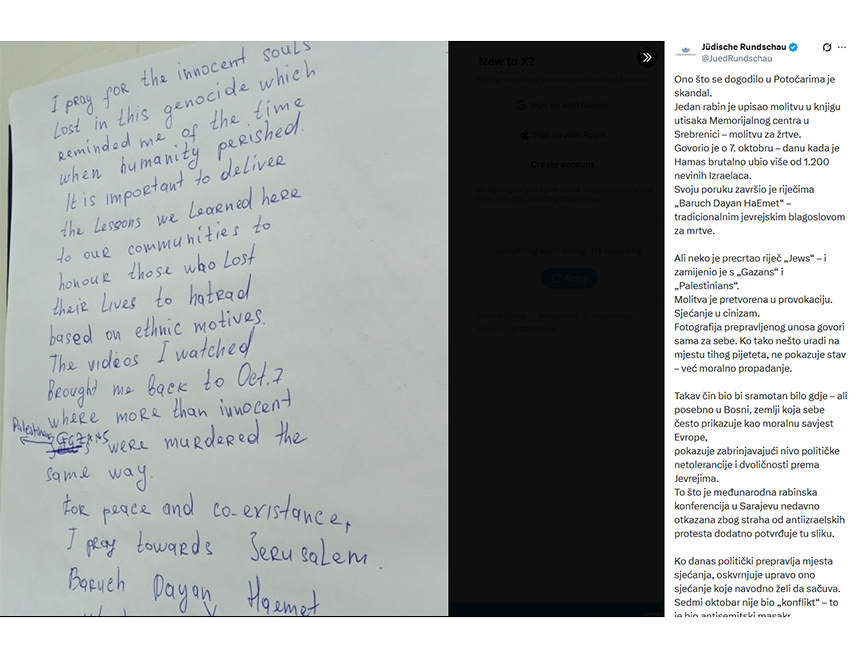 I pray for the innocent souls
Lost in this genocide which
reminded me of the time
when humanity perished.
It is important to deliver
the Lessons we Learned here
to our communities to
honour those who Lost
their Lives to hatrad
based on ethnic motives.
The videos I watched
Brought me back to Oct.7
where more than innocent
Palestinians GAZANS were murdered the
same way.
For peace and co-existance,
I pray towards Jerusalem.
Baruch Dayan Haemet
New to X?
Sign up with Google
Sign up with Apple
Create account
Something went wrong. Try reloading.
Retry
Jüdische Rundschau
@JuedRundschau
Ono što se dogodilo u Potočarima je
skandal.
Jedan rabin je upisao molitvu u knjigu
utisaka Memorijalnog centra u
Srebrenici – molitvu za žrtve.
Govorio je o 7. oktobru – danu kada je
Hamas brutalno ubio više od 1.200
nevinih Izraelaca.
Svoju poruku završio je riječima
„Baruch Dayan HaEmet“ –
tradicionalnim jevrejskim blagoslovom
za mrtve.
Ali neko je precrtao riječ „Jews“ – i
zamijenio je s „Gazans“ i
„Palestinians“.
Molitva je pretvorena u provokaciju.
Sjećanje u cinizam.
Fotografija prepravljenog unosa govori
sama za sebe. Ko tako nešto uradi na
mjestu tihog pijeteta, ne pokazuje stav
– već moralno propadanje.
Takav čin bio bi sramotan bilo gdje – ali
posebno u Bosni, zemlji koja sebe
često prikazuje kao moralnu savjest
Evrope,
pokazuje zabrinjavajući nivo političke
netolerancije i dvoličnosti prema
Jevrejima.
To što je međunarodna rabinska
konferencija u Sarajevu nedavno
otkazana zbog straha od antiizraelskih
protesta dodatno potvrđuje tu sliku.
Ko danas politički prepravlja mjesta
sjećanja, oskvrnjuje upravo ono
sjećanje koje navodno želi da sačuva.
Sedmi oktobar nije bio „konflikt“ – to
je bio antisemitski masakr